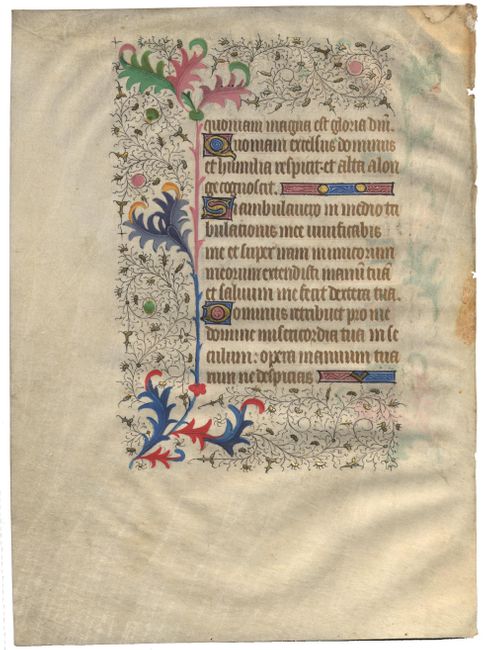 quoniam magna est gloria dni.
Quoniam excelsus dominus
et humilia respicit et alta alon
ge cognoscit.
Si ambulavero in medio tri
bulationis me vivificabis
me et super iram inimicorum
meorum extendisti manu tuā
et salvum me fecit dextera tua.
Dominus retribuet pro me
domine misericordia tua in se
culum: opera manuum tua
rum ne despicias